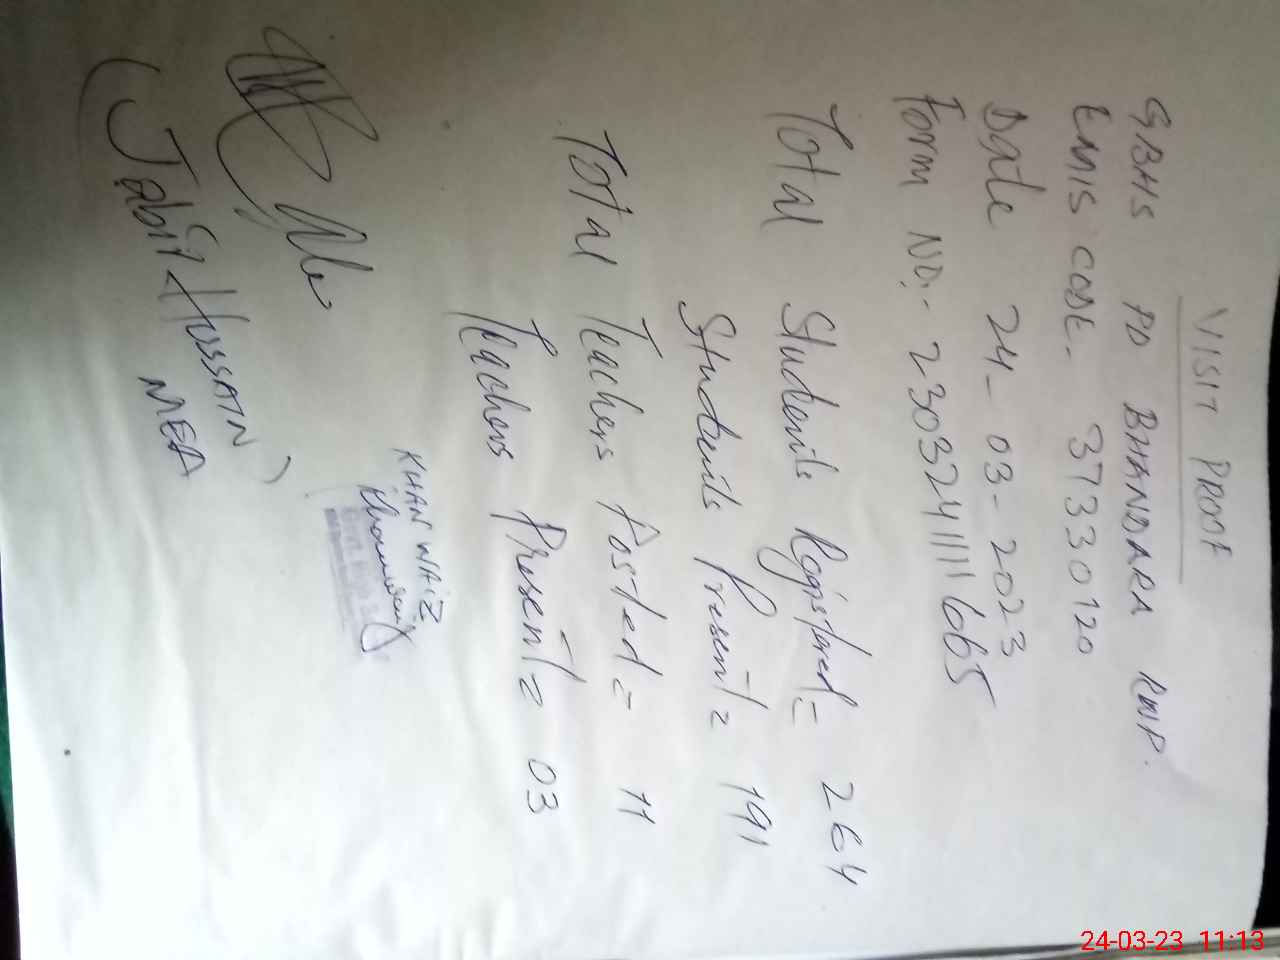 VISIT PROOF
GBHS PD BHANDARA RWP.
EMIS CODE. 37330120
Date 24-03-2023
Form NO:- 230324111116665
Total Students Registered = 264
Students Present = 191
Total Teachers Posted = 11
Teachers Present = 03
KHAN WAIZ
(Jabit Hussain)
MEA
24-03-23 11:13